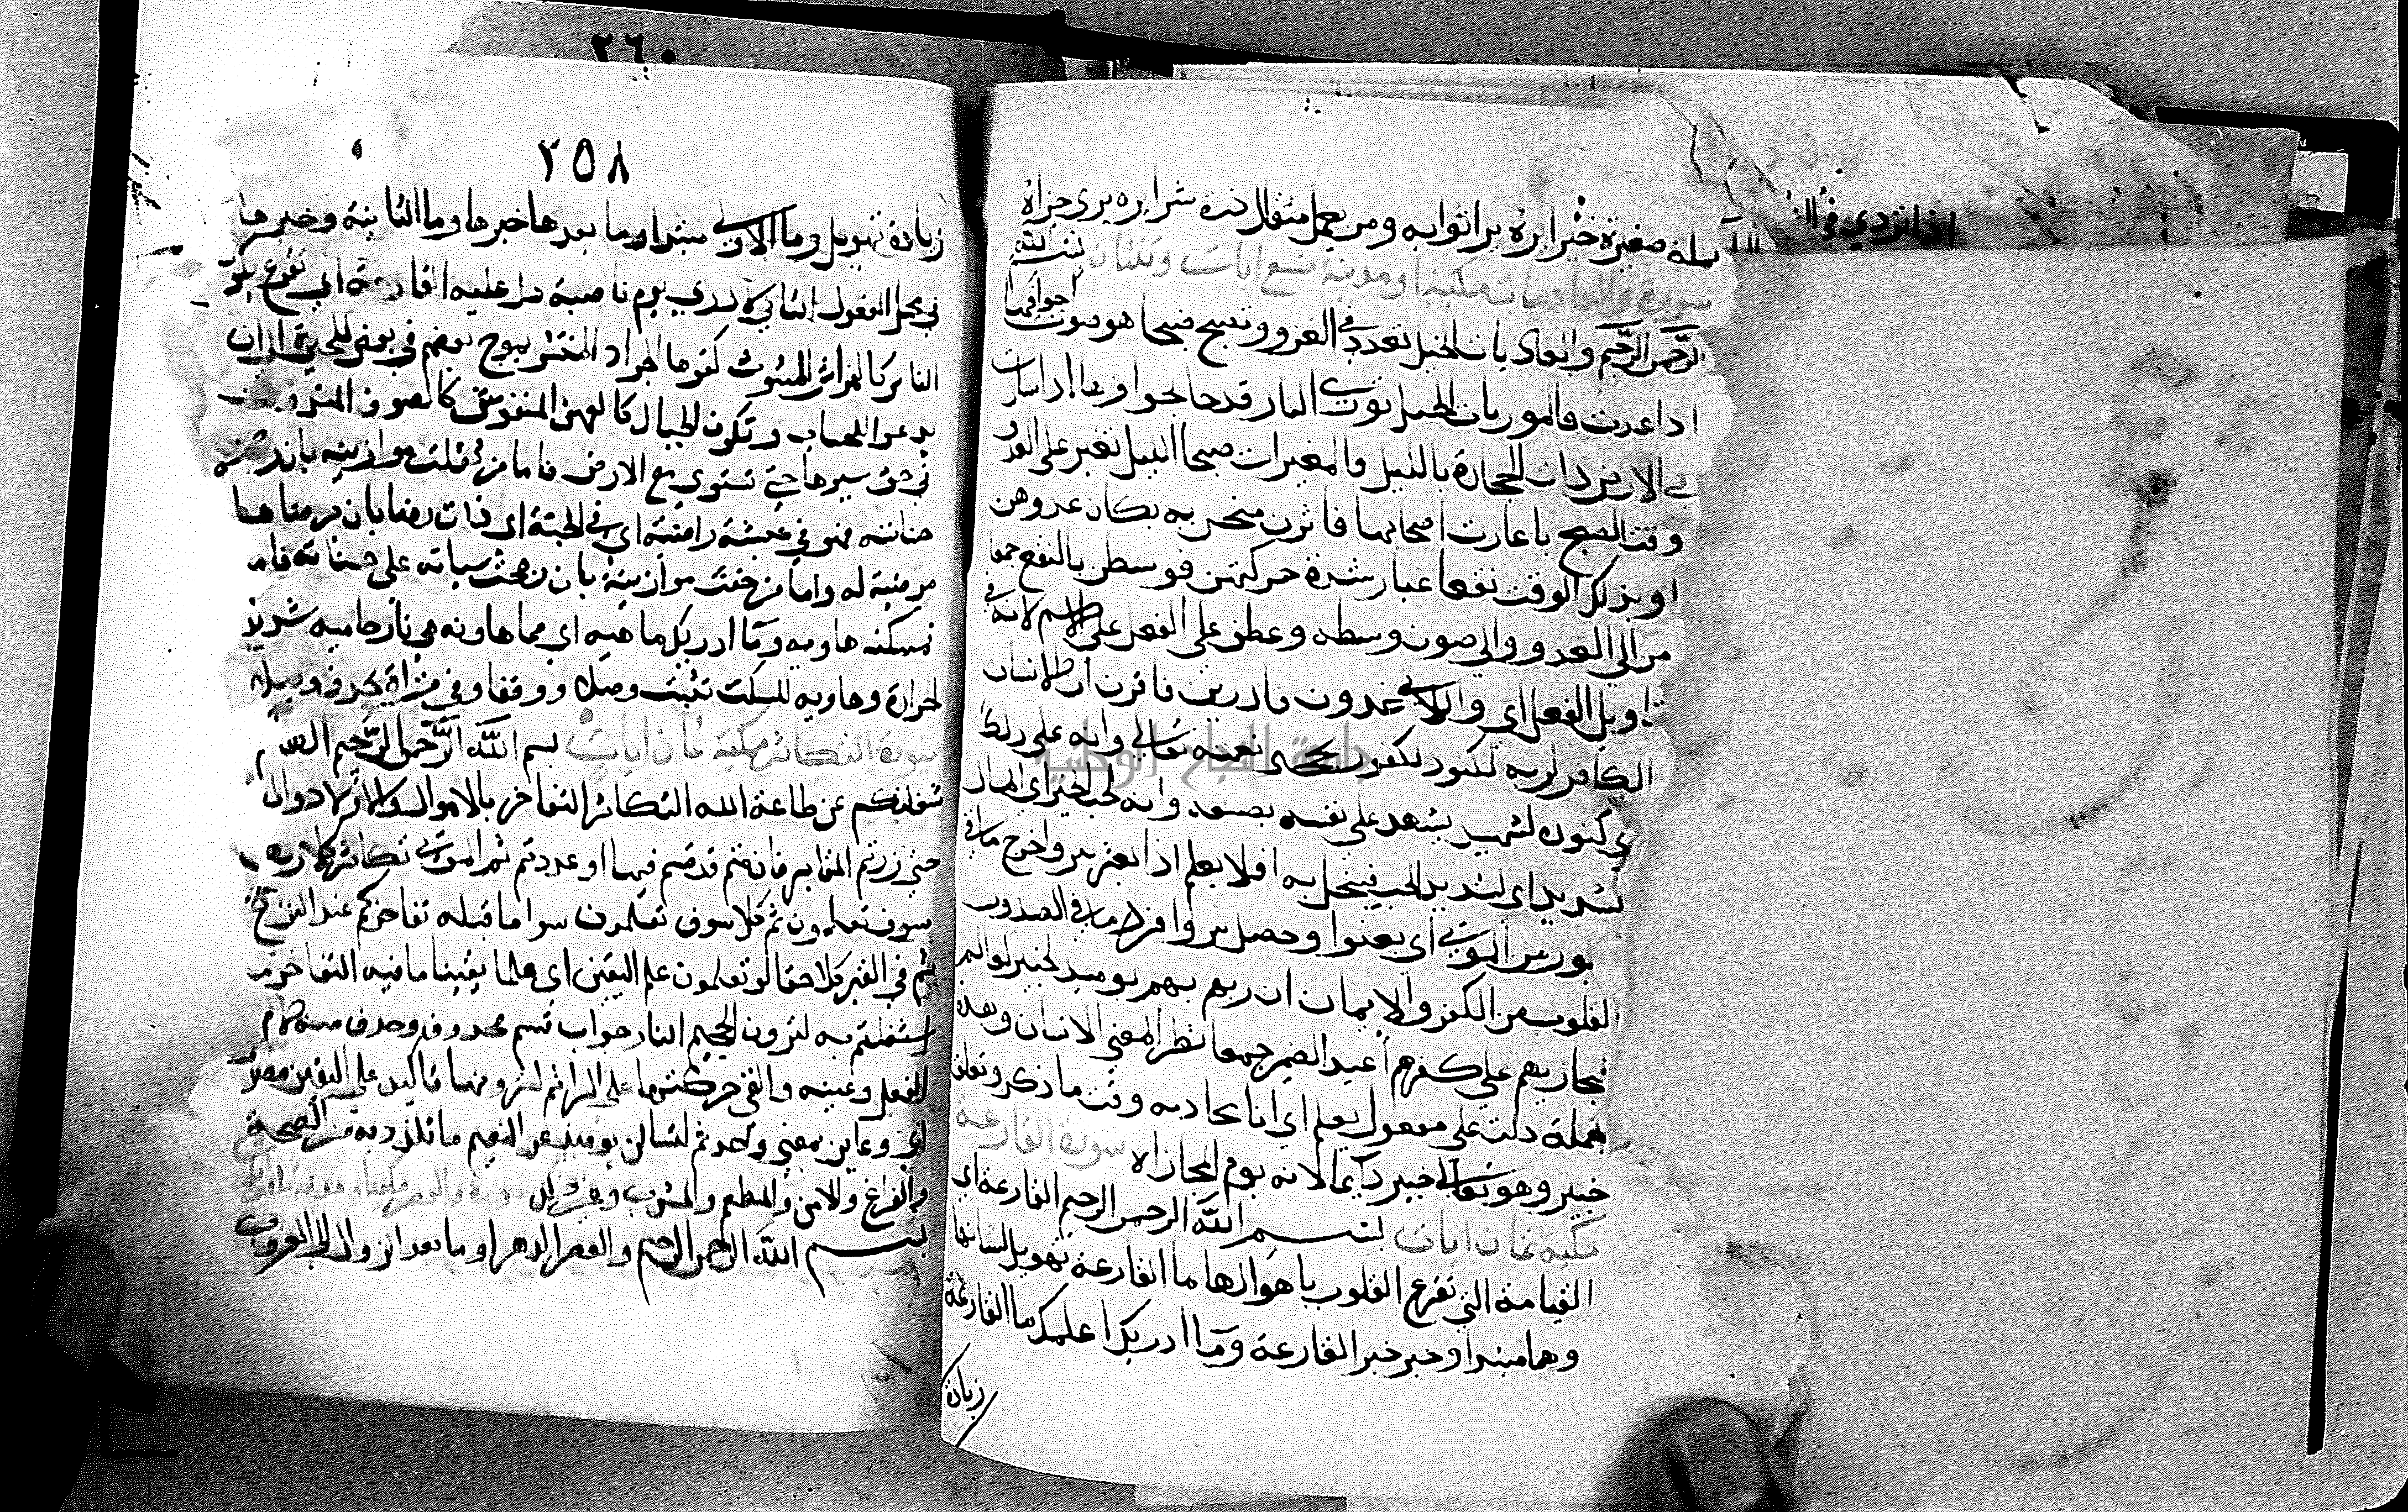 نملة صغيرة خيرا يره ير ثوابه ومن يعمل مثقال ذرة شرا يره يرى جزاه
سورة والعاديات مكية او مدنية تسع ايات وثلثان بسم الله
الرحمن الرحيم والعاديات الخيل تعدو في الغزو وتضبح ضبحا هو صوت اجوافها
اذا عدت فالموريات الخيل تورى النار قدحا بحوافرها اذا سارت
في الارض ذات الحجارة بالليل فالمغيرات صبحا الخيل تغير على العدو
وقت الصبح باغارت اصحابها فاثرن هيجن به بمكان عدوهن
او بذلك الوقت نقعا غبار بشدة حركتهن فوسطن بالنقع جمعا
من العدو اي صرن وسطه وعطف الفعل على الاسم لانه في
تاويل الفعل اي واللاتي عدون فاورين فاثرن ان الانسان
الكافر لربه لكنود لكفور يجحد نعمه تعالى وانه على ذلك
اي كنوده لشهيد يشهد على نفسه بصنعه وانه لحب الخير اي المال
لشديد اي لشديد الحب فيبخل به افلا يعلم اذا بعثر واخرج ما في
القبور من الموتى اي بعثوا وحصل بين وافرز ما في الصدور
القلوب من الكفر والايمان ان ربهم بهم يوميذ لخبير لعالم
فيجازيهم على كفرهم اعيد الضمير جمعا نظرا لمعنى الانسان وهذه
الجملة دلت على مفعول يعلم اي انا نجازيه وقت ما ذكر وتعلق
خبير وهو تعالى خبير دايما لانه يوم المجازاه سورة القارعة
مكية ثمان ايات بسم الله الرحمن الرحيم القارعة اي
القيامة التي تقرع القلوب باهوالها ما القارعة تهويل لشانها
وهما مبتدا وخبر خبر القارعة وما ادريك اعلمك ما القارعة
زيادة
٢٥٨
زيادة تهويل وما الاولى مبتدا وما بعدها خبرها وما الثانية وخبرها
في محل المفعول الثاني لادرى يوم ناصبه دل عليه القارعة اي تقرع يكون
الناس كالفراش المبثوث كغوغا الجراد المنتشر يموج بعضهم في بعض للحيرة الى ان
يدعوا للحساب وتكون الجبال كالعهن المنفوش كالصوف المندوف
في خفة سيرها حتى تستوي مع الارض فاما من ثقلت موازينه بان رجحت
حسناته فهو في عيشة راضية اي في الجنة اي ذات رضا بان يرضاها
مرضية له واما من خفت موازينه بان رجحت سياته على حسناته فامه
فمسكنه هاوية وما ادريك ما هيه اي ما هاوية هي نار حامية شديدة
الحرارة وهاويه للسكت تثبت وصلا ووقفا وفي قراة تحذف وصلا
سورة التكاثر مكية ثمان ايات بسم الله الرحمن الرحيم الهاكم
شغلكم عن طاعة الله التكاثر التفاخر بالاموال والاولاد
حتى زرتم المقابر بان متم فدفنتم فيها او عددتم الموتى تكاثرا كلا ردع
سوف تعلمون ثم كلا سوف تعلمون سوا ما قبله تفاخركم عند النزع
ثم في القبر كلا حقا لو تعلمون علم اليقين اي علما يقينا ما فيه التفاخر ما
اشتغلتم به لترون الجحيم النار جواب قسم محذوف وحذف منه لام
الفعل وعينه والقى حركتها على الرا ثم لترونها تاكيد عين اليقين مصدر
لان راى وعاين بمعنى واحد ثم لتسالن يوميذ عن النعيم ما تلذذ به من الصحة
والفراغ والامن والمطعم والمشرب وغير ذلك
بسم الله الرحمن الرحيم والعصر الدهر او ما بعد الزوال الى الغروب